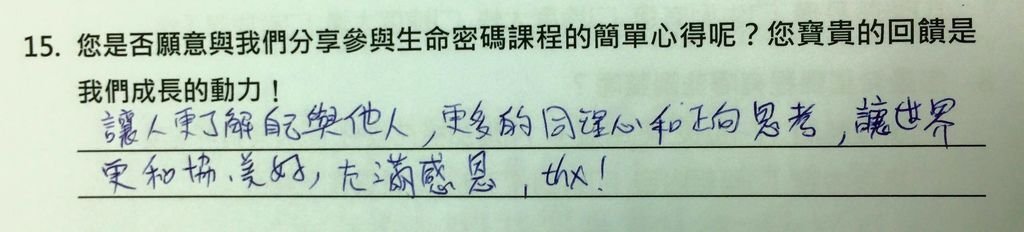 15. 您是否願意與我們分享參與生命密碼課程的簡單心得呢？您寶貴的回饋是
我們成長的動力！
讓人更了解自己與他人，更多的同理心和正向思考，讓世界
更和協、美好，充滿感恩，thx！